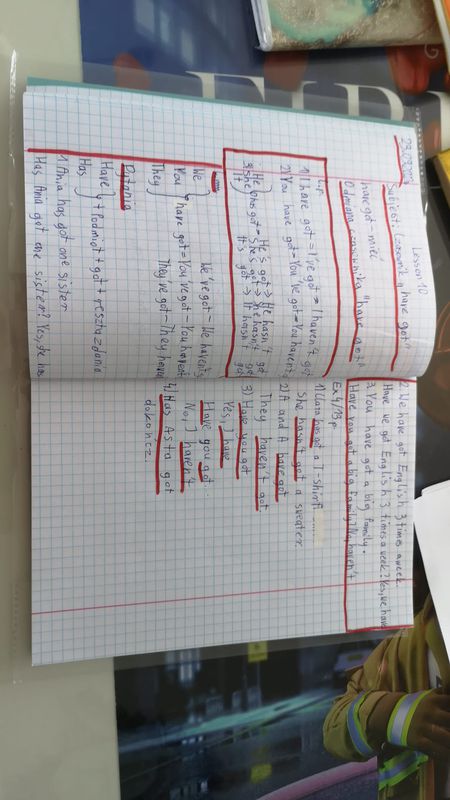 Lesson 10
Subject: Czasownik "have got"
have got - mieć
Odmiana czasownika "have got"
l.p.
1) I have got = I've got → I haven't got
2) You have got = You've got = You haven't
3) He
She
It
has got = He's got → He hasn't
She's got → She hasn't
It's got → It hasn't got
We
You
They
have got = We've got - We haven't
You've got - You haven't
They've got - They haven't
Pytania
Have
Has
+ Podmiot + got + reszta zdania
1. Ania has got one sister
Has Ania got one sister? Yes,
2. We have got English 3 times a week.
Have we got English 3 times a week? Yes, we have
3. You have got a big family.
Have you got a big family? No, haven't
1) Clara has got a T-shirt
She hasn't got a sweater.
2) A and A have got
They haven't got
3) Have you got
Yes, I have
Have you got...
No, I haven't
4) Has Asta got
dokończ.